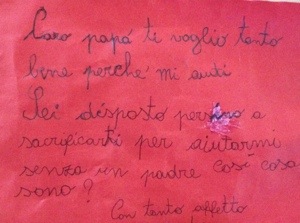 Caro papá ti voglio tanto
bene perché mi aiuti
Sei disposto persino a
sacrificarti per aiutarmi
senza un padre così cosa
sono?
Con tanto affetto